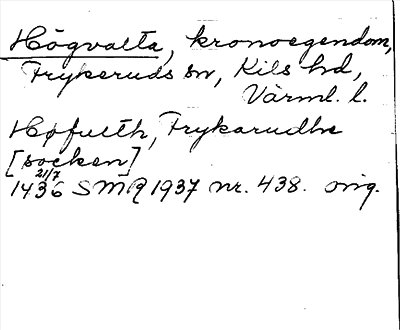 Högvalta, kronoegendom,
Frykeruds sn, Kils hd,
Värml. l.
Høfuelth, Frykarudhe
[socken]
21/7
1436 SMR 1937 nr. 438. orig.